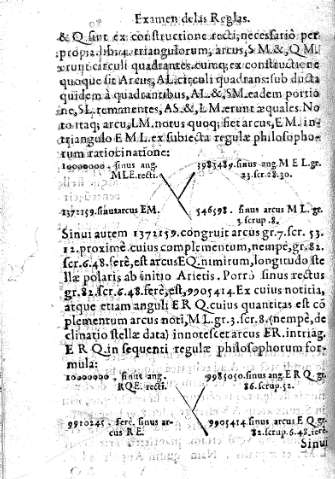 Examen de las Reglas.
& Q sint ex constructione recti, necessariò per
propria. lib. 4. triangulorum, arcus, S M. & Q M.
erunt circuli quadrantes. cumq; ex constructione
quoque sit Arcus, AL. circuli quadrans: sub ducta
quidem à quadrantibus, AL. & SM. eadem portio
ne, SL. remanentes, AS. & LM. erunt æquales. No
to itaq; arcu, LM. notus quoq; fiet arcus, E M. in
triangulo E M L. ex subiecta regulæ philosopho-
rum ratiotinatione:
10000000. sinus ang.
MLE. recti.
3983489. sinus ang. M E L. gr.
23. scr. 28. 30.
1372159. sinus arcus EM.
546598. sinus arcus M L. gr.
3 scrup. 8.
Sinui autem 1372159. congruit arcus gr. 7. scr. 53.
12. proximè. cuius complementum, nempè, gr. 82.
scr. 6. 48. ferè, est arcus EQ. nimirum, longitudo ste
llæ polaris ab initio Arietis. Porrò sinus rectus
gr. 82. scr. 6. 48. ferè, est, 9905414. Ex cuius notitia,
atque etiam anguli E R Q. cuius quantitas est cõ
plementum arcus noti, M L gr. 3. scr. 8. (nempè, de
clinatio stellæ data) innotescet arcus ER. in triãg.
E R Q. in sequenti regulæ philosophorum for-
mula:
10000000. sinus ang.
RQE. recti.
9985050. sinus ang. E R Q. gr.
86. scrup. 52.
9910245. ferè. sinus ar-
cus R E.
9905414. sinus arcus E Q. gr.
82. scrup. 6. 48. ferè.
Sinui